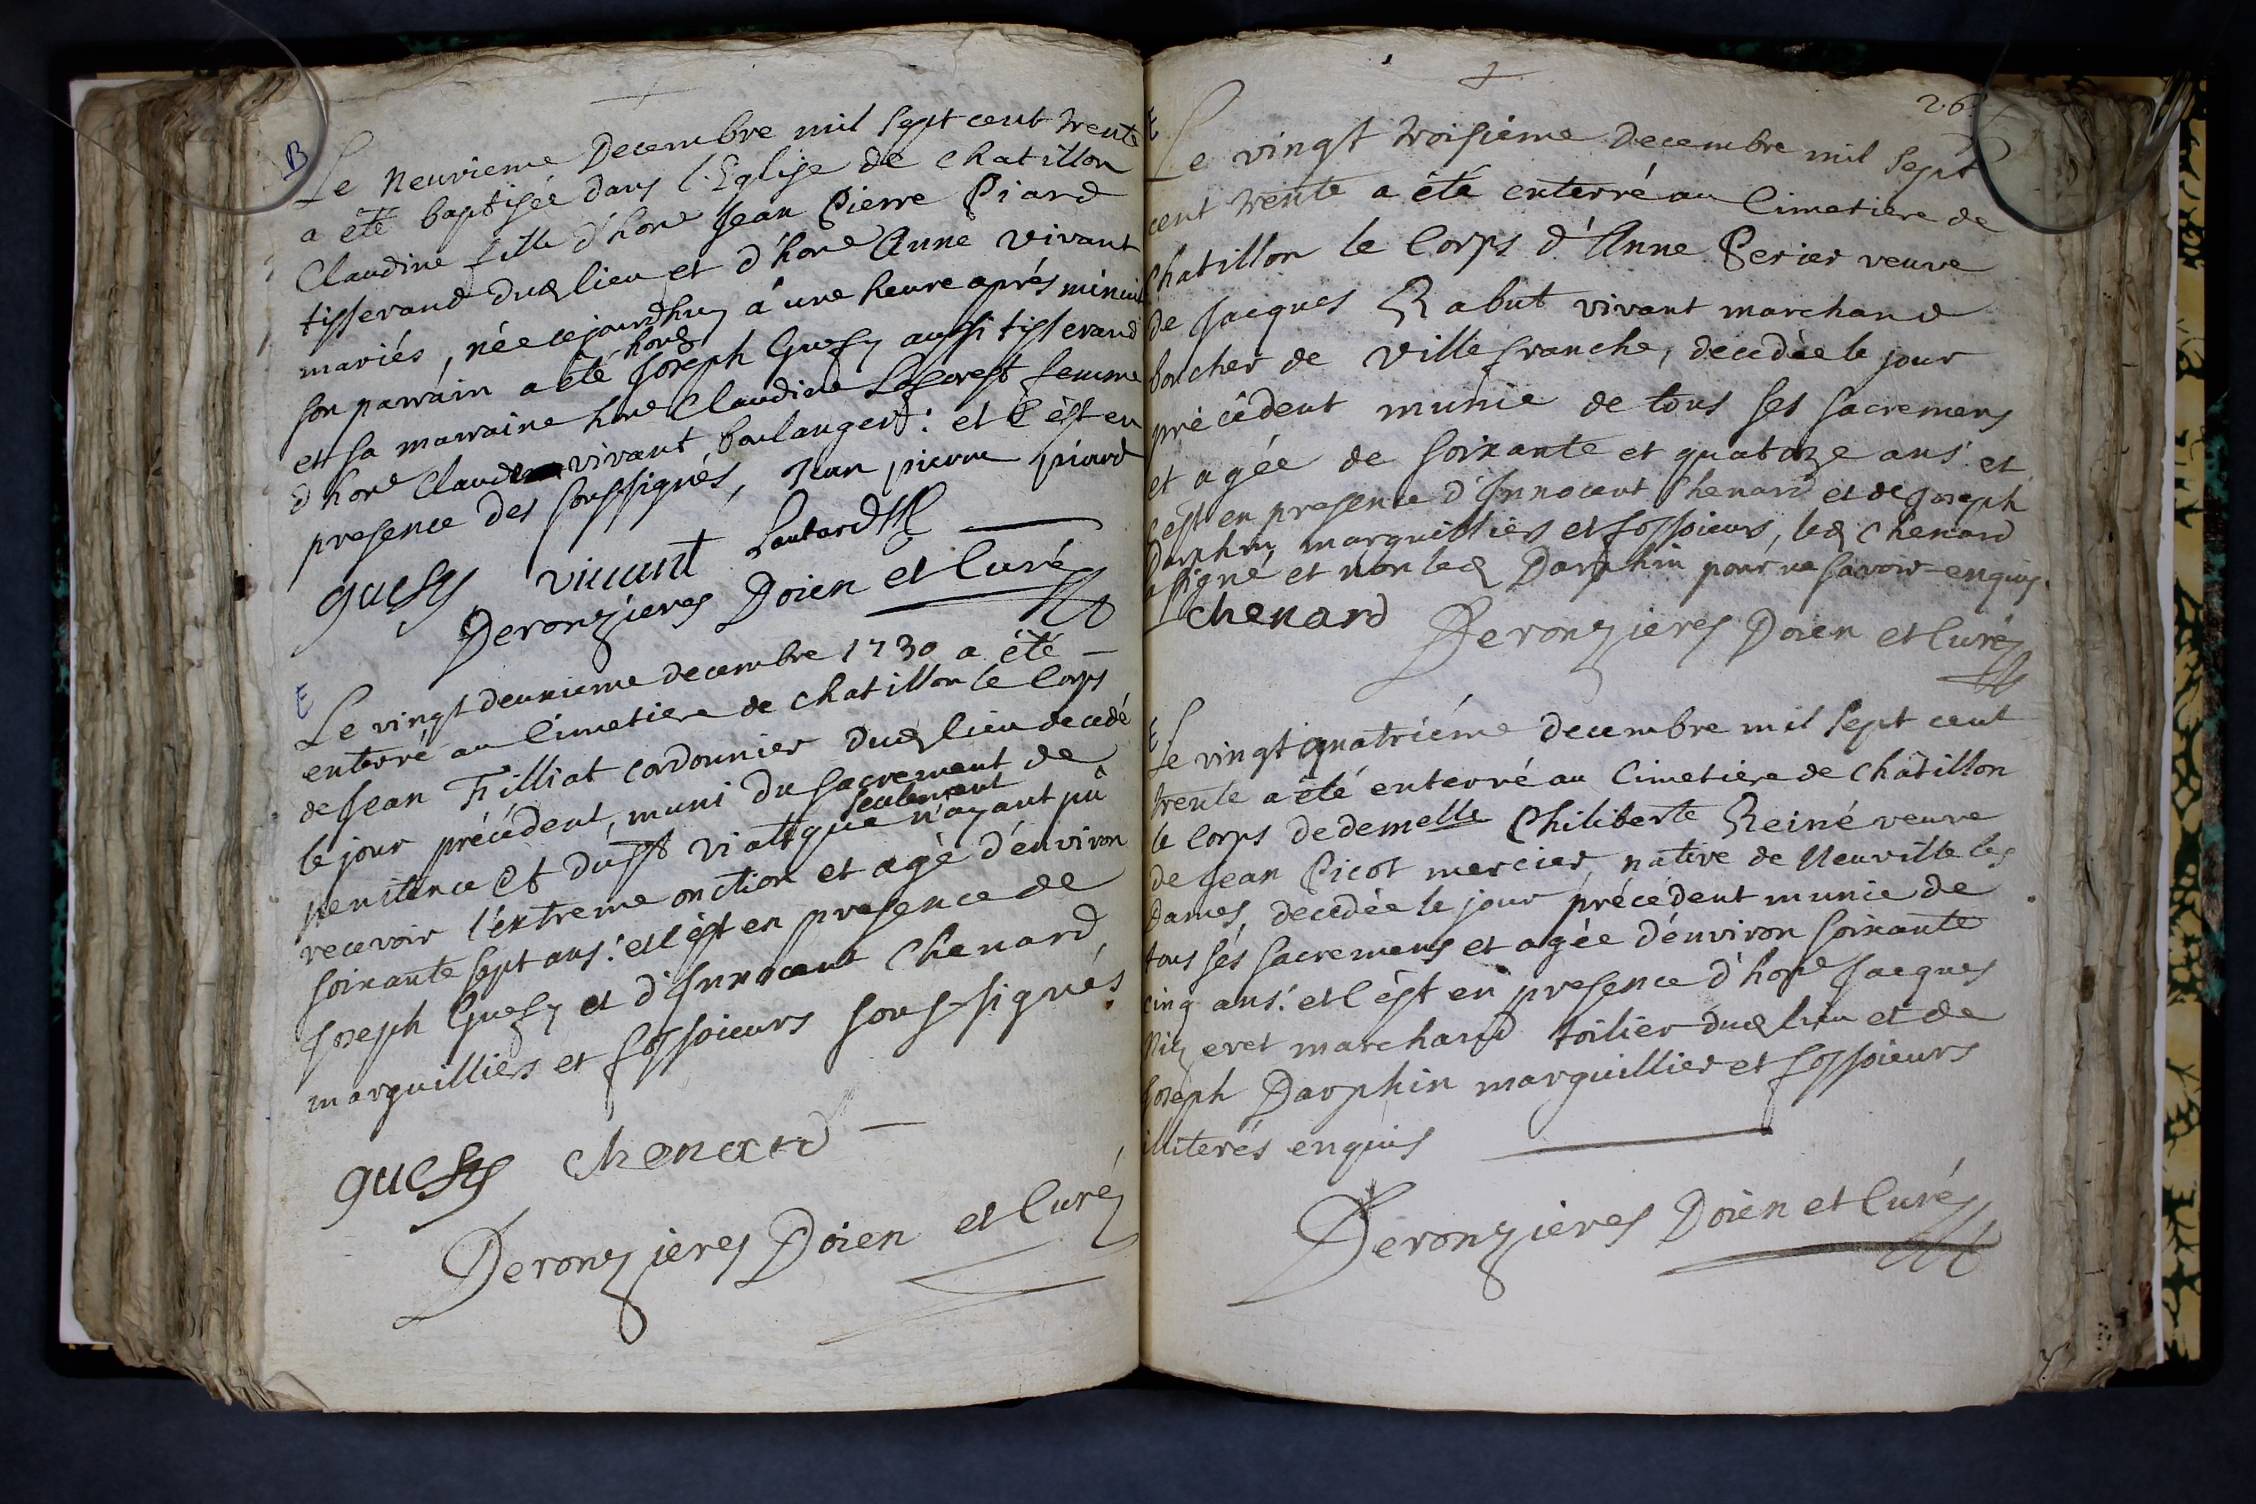 B
Le neuvieme Decembre mil sept cent trente
a été baptisée dans l'Eglise de Chatillon
Claudine fille d'hone Jean Pierre Piard
tisserand dud lieu et d'hone Anne Vivant
mariés, née cejourdhuy à une heure après minuit
son parrain a été Joseph Guesy aussi tisserand
hone
et sa marraine hone Claudine Laforest femme
d'hone Claude vivant boulanger: et c'est en
presence des soussignés, Jean pierre piard
guesy vivant Lautard
Deronzieres Doien et Curé
E
Le vingt deuxieme decembre 1730 a été
enterré au Cimetiere de chatillon le Corps
de Jean Filliat cordonnier dud lieu decedé
le jour précédent, muni du sacrement de
penitence et du St viatique n'ayant pû
seulement
recevoir l'extreme onction et agé d'environ
soixante sept ans: et c'est en presence de
Joseph Guesy et d'Innocent Chenard,
marguilliers et fossoieurs sous-signés
guesy chenard
Deronzieres Doien et Curé
26
E
Le vingt troisieme decembre mil sept
cent trente a été enterré au Cimetiere de
Chatillon le Corps d'Anne Perier veuve
de Jacques Rabut vivant marchand
boucher de villefranche, decedée le jour
précédent munie de tous ses sacremens
et agée de soixante et quatorze ans et
c'est en presence d'Innocent Chenard et de Joseph
Darphin marguilliers et fossoieurs, led Chenard
a signé et non led Darphin pour ne savoir enquis.
chenard Deronzieres Doien et Curé
E
Le vingt quatriéme decembre mil sept cent
trente a été enterré au Cimetiere de Châtillon
le Corps de demelle Philiberte Reiné veuve
de Jean Picot mercier, native de Neuville les
Dames, decedée le jour précédent munie de
tous ses sacremens et agée d'environ soixante
cinq ans: et c'est en presence d'hone Jacques
marchand toilier dud lieu et de
Joseph Darphin marguillier et fossoieurs
illiterés enquis
Deronzieres Doien et Curé